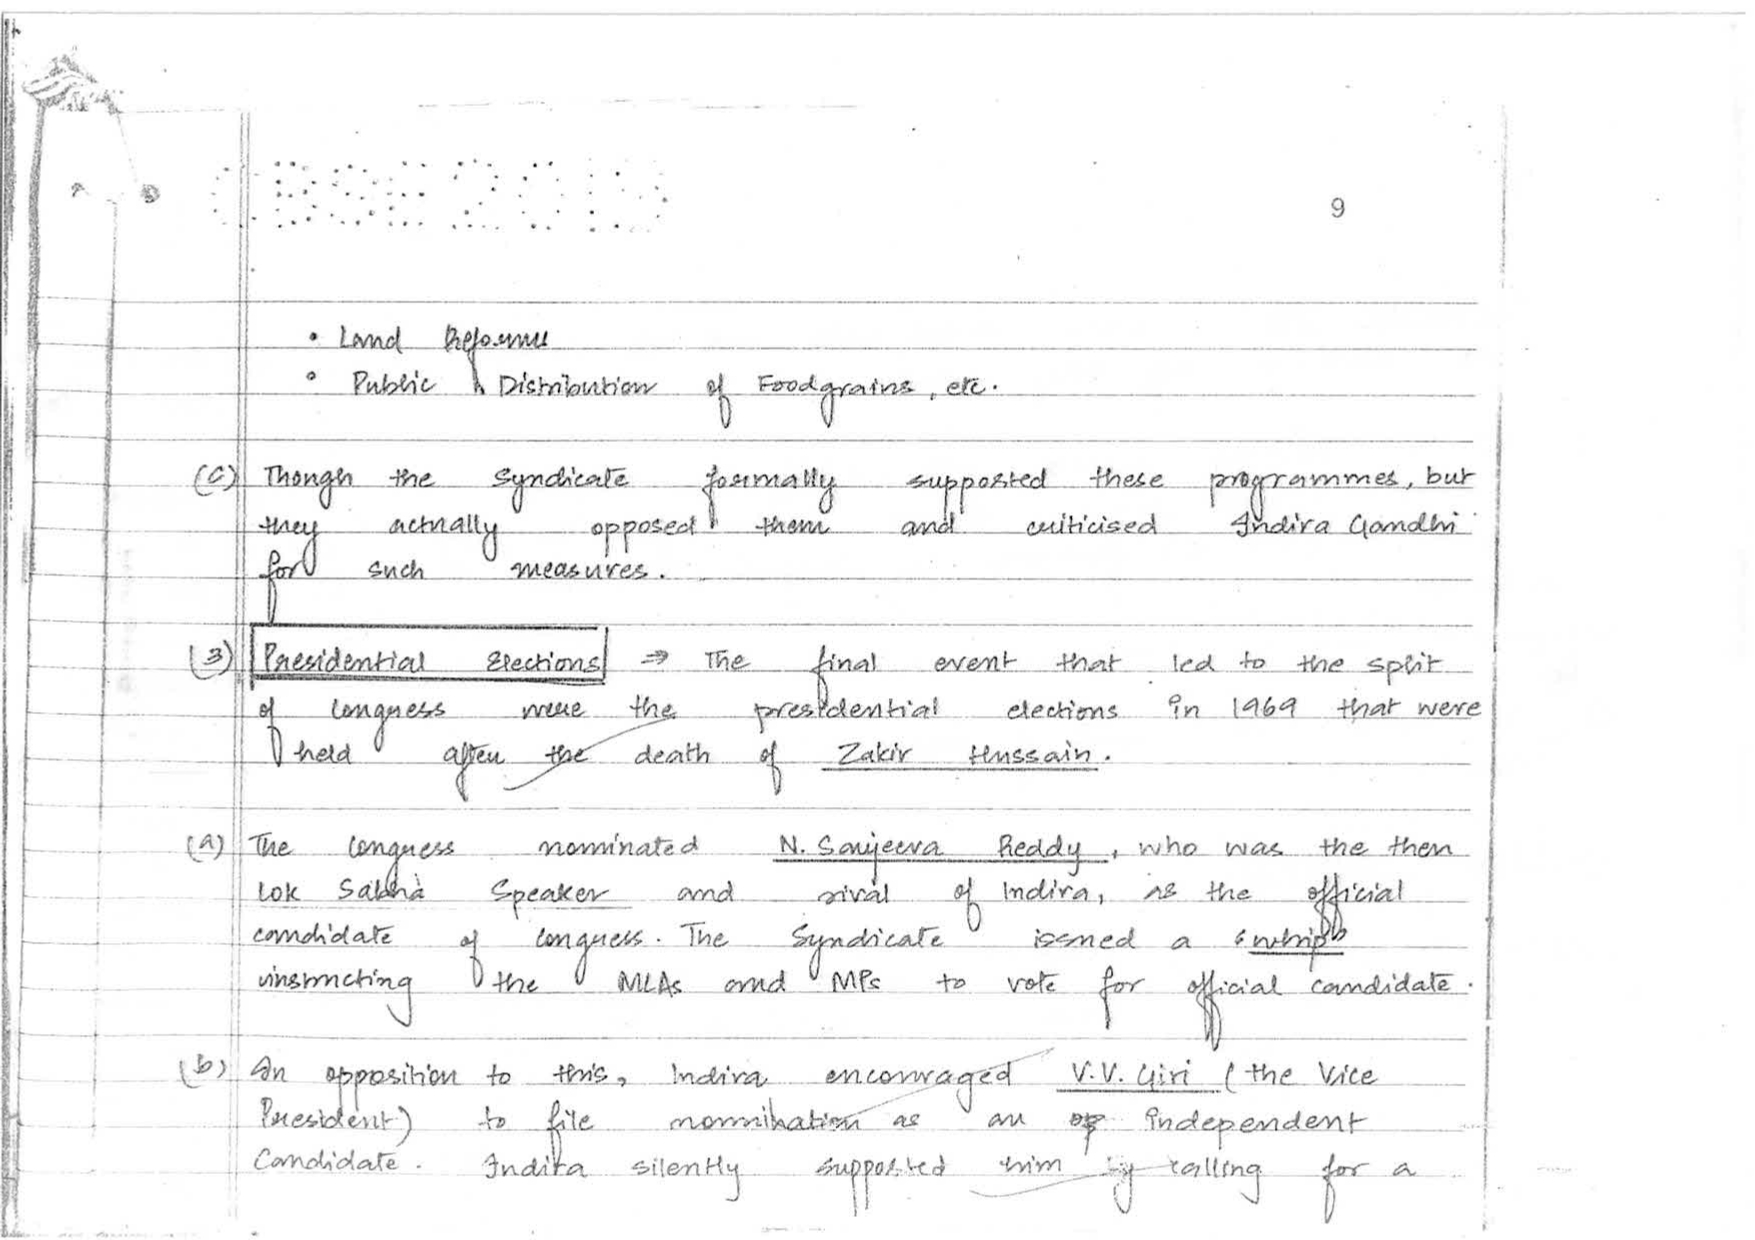 CBSE 2019
9
• Land Reforms
• Public Distribution of Foodgrains, etc.
(C) Though the Syndicate formally supported these programmes, but
they actually opposed them and criticised Indira Gandhi
for such measures.
(3) Presidential Elections → The final event that led to the split
of Congress were the presidential elections in 1969 that were
held after the death of Zakir Hussain.
(a) The Congress nominated N. Sanjeeva Reddy, who was the then
Lok Sabha Speaker and rival of Indira, as the official
candidate of Congress. The Syndicate issued a "whip"
instructing the MLAs and MPs to vote for official candidate.
(b) In opposition to this, Indira encouraged V.V. Giri (the Vice
President) to file nomination as an independent
Candidate. Indira silently supported him by calling for a